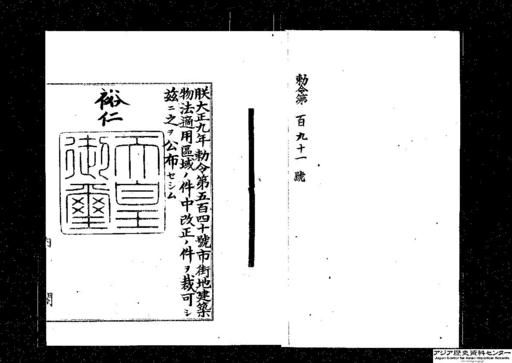 勅令第百九十一號
朕大正九年勅令第五百四十號市街地建築
物法適用區域ノ件中改正ノ件ヲ裁可シ
茲ニ之ヲ公布セシム
裕仁
天皇
御璽
内閣
アジア歴史資料センター
Japan Center for Asian Historical Records